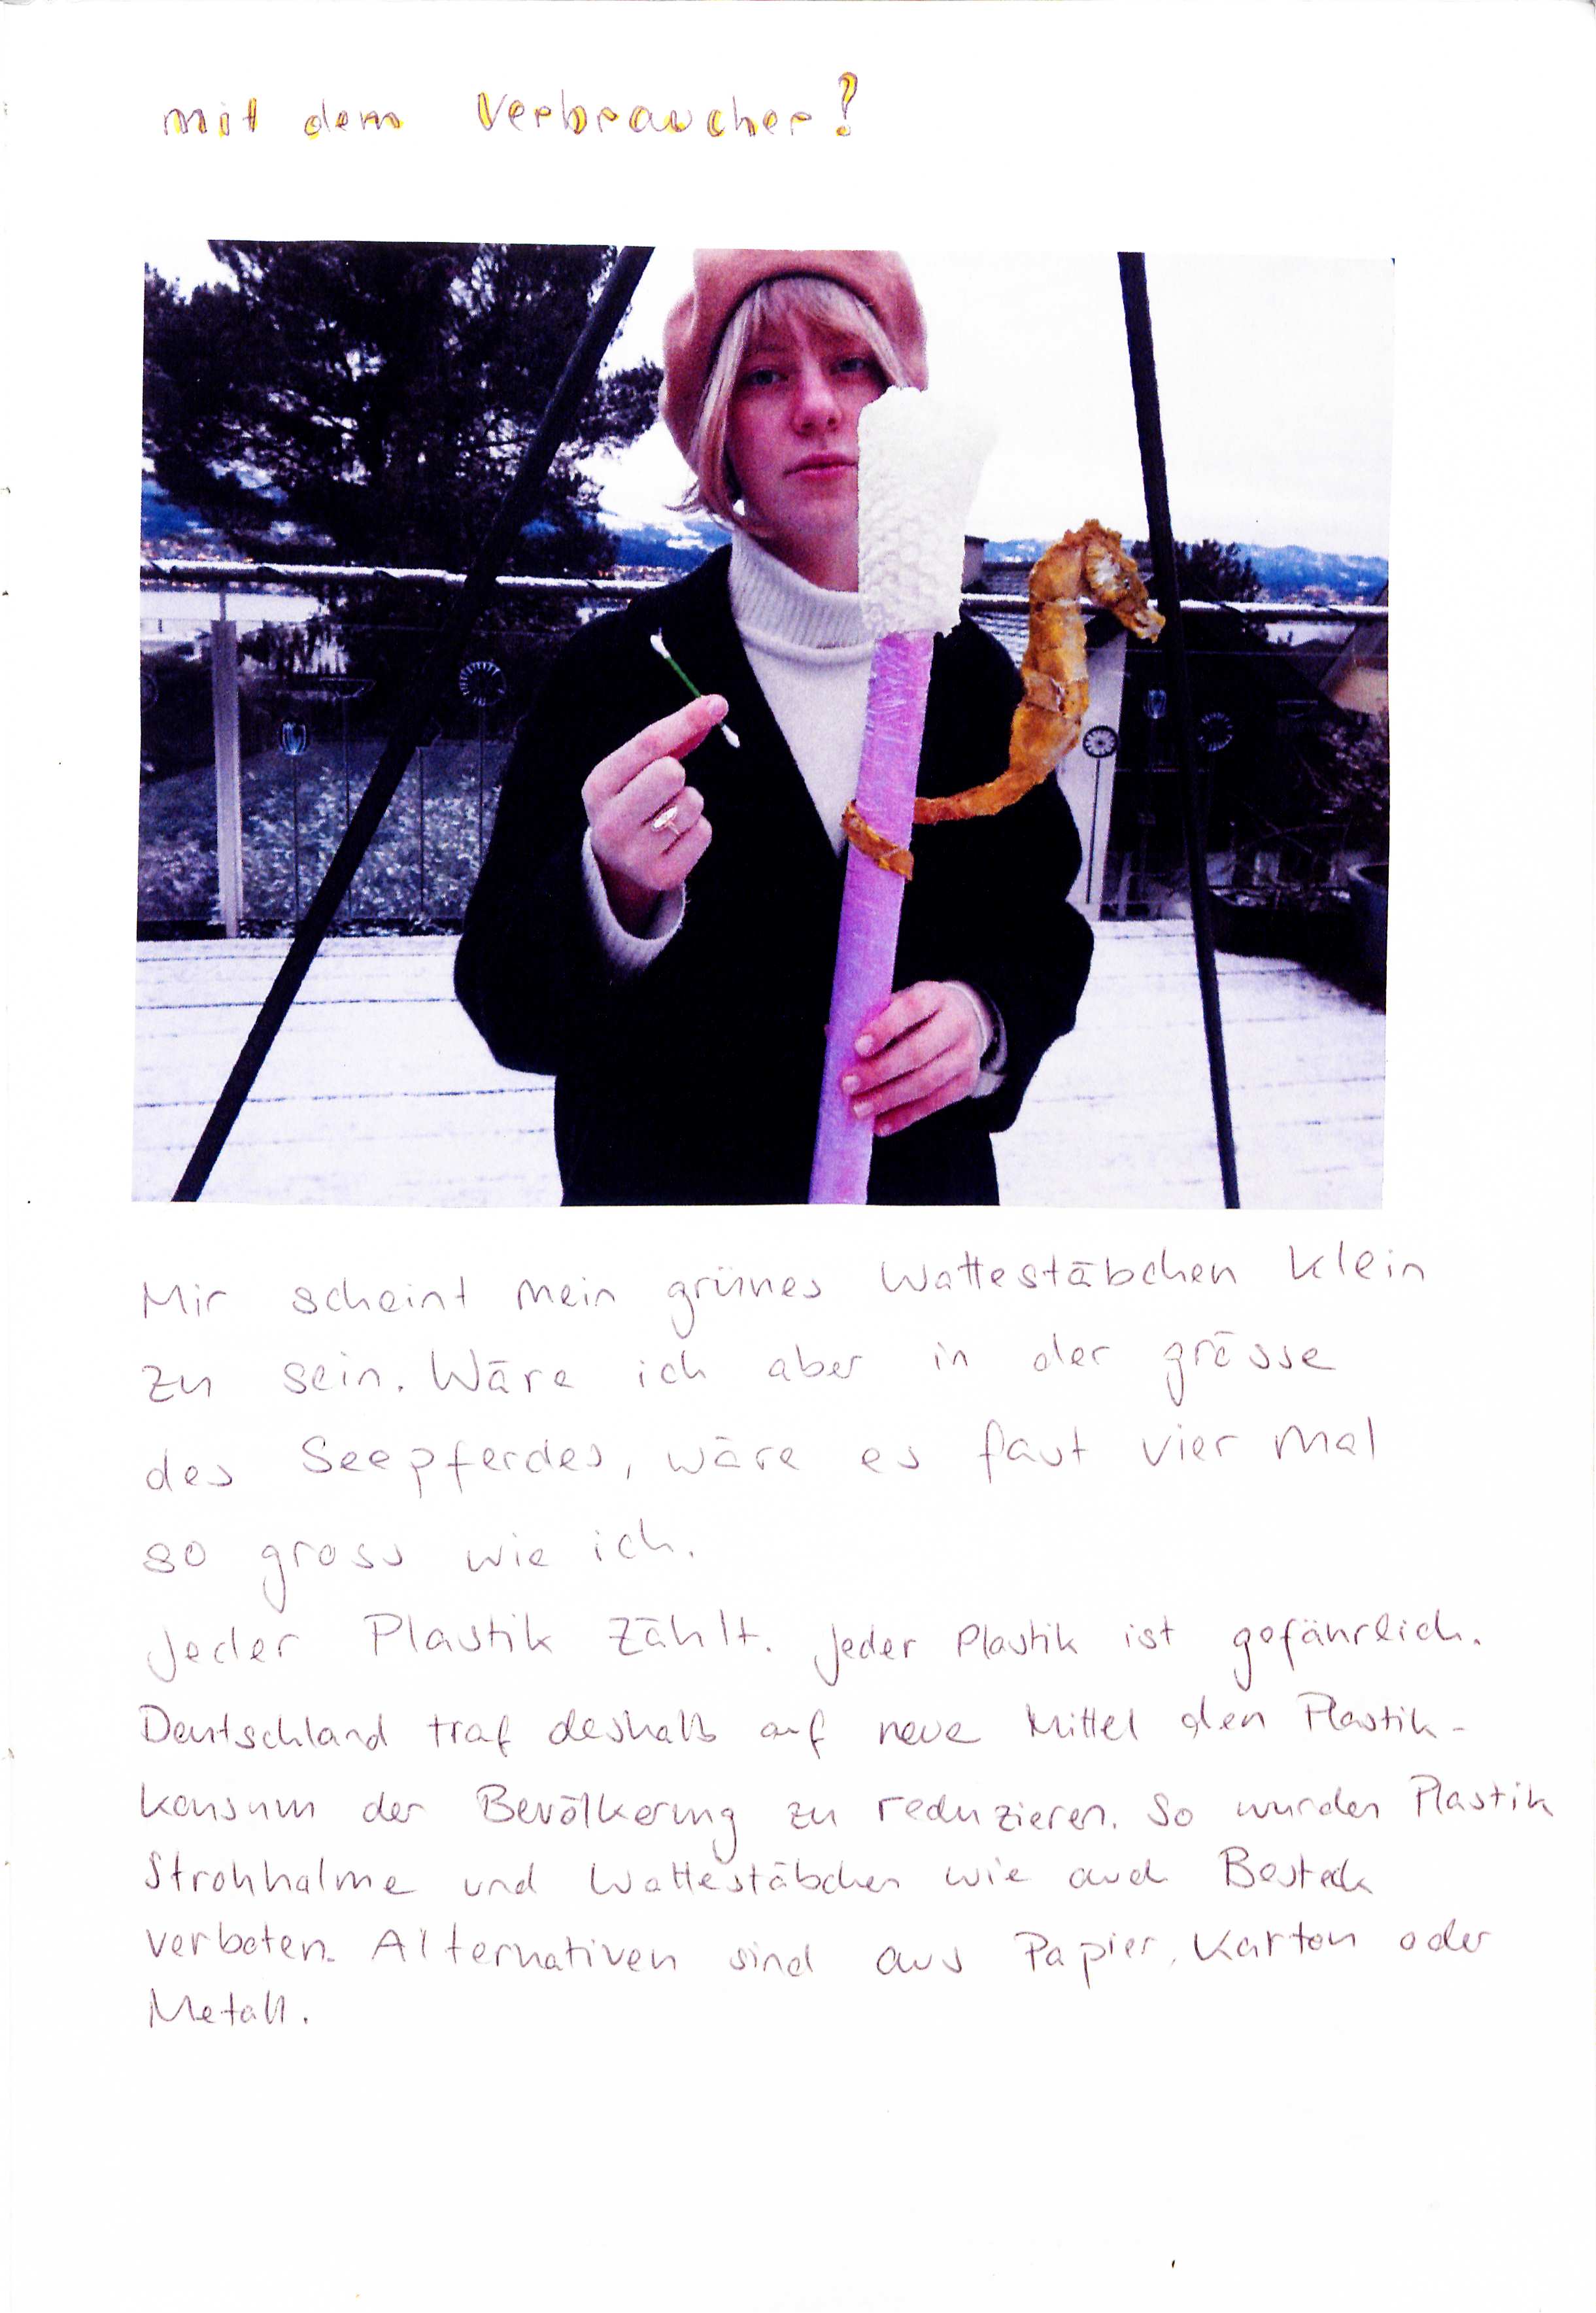 mit dem Verbraucher?
Mir scheint mein grünes Wattestäbchen klein
zu sein. Wäre ich aber in der grösse
des Seepferdes, wäre es fast vier mal
so gross wie ich.
Jeder Plastik zählt. Jeder Plastik ist gefährlich.
Deutschland traf deshalb auf neue Mittel den Plastik-
konsum der Bevölkerung zu reduzieren. So wurden Plastik
Strohhalme und Wattestäbchen wie auch Besteck
verboten. Alternativen sind aus Papier, Karton oder
Metall.